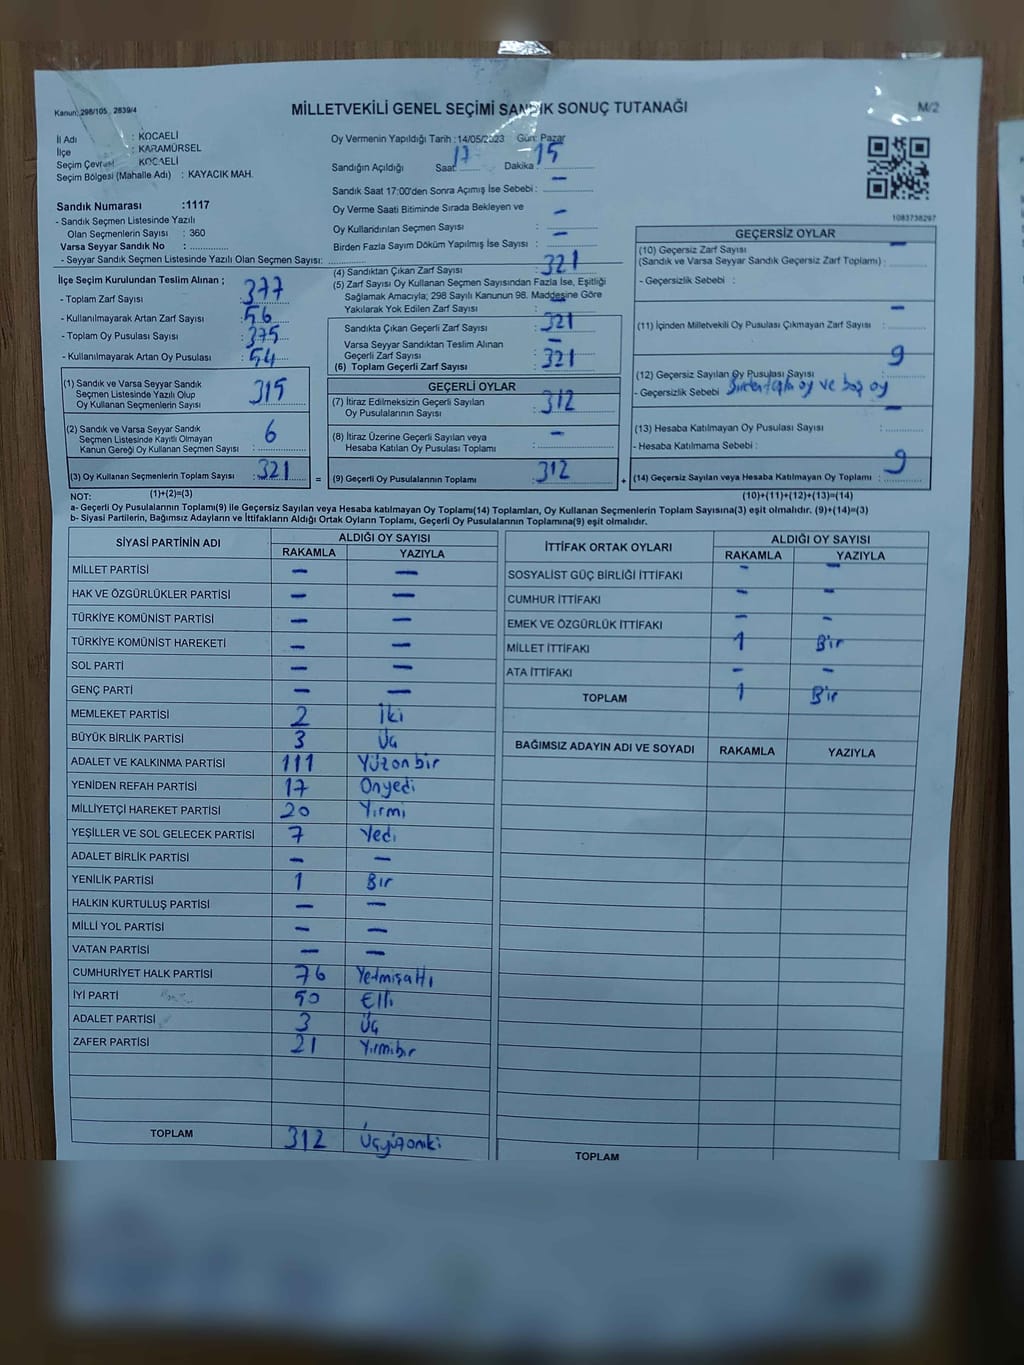 Kanun: 298/105, 2839/4
MİLLETVEKİLİ GENEL SEÇİMİ SANDIK SONUÇ TUTANAĞI
M/2
İl Adı : KOCAELİ
İlçe : KARAMÜRSEL
Seçim Çevresi : KOCAELİ
Seçim Bölgesi (Mahalle Adı) : KAYACIK MAH.
Oy Vermenin Yapıldığı Tarih :14/05/2023 Gün: Pazar
Sandığın Açıldığı Saat: 17 Dakika: 15
Sandık Saat 17:00'den Sonra Açımış İse Sebebi : —
Oy Verme Saati Bitiminde Sırada Bekleyen ve
Oy Kullandırılan Seçmen Sayısı : —
Birden Fazla Sayım Döküm Yapılmış İse Sayısı : —
1083738297
Sandık Numarası :1117
- Sandık Seçmen Listesinde Yazılı
Olan Seçmenlerin Sayısı : 360
Varsa Seyyar Sandık No :
- Seyyar Sandık Seçmen Listesinde Yazılı Olan Seçmen Sayısı:
İlçe Seçim Kurulundan Teslim Alınan ;
- Toplam Zarf Sayısı : 377
- Kullanılmayarak Artan Zarf Sayısı : 56
- Toplam Oy Pusulası Sayısı : 375
- Kullanılmayarak Artan Oy Pusulası : 54
(1) Sandık ve Varsa Seyyar Sandık
Seçmen Listesinde Yazılı Olup
Oy Kullanan Seçmenlerin Sayısı : 315
(2) Sandık ve Varsa Seyyar Sandık
Seçmen Listesinde Kayıtlı Olmayan
Kanun Gereği Oy Kullanan Seçmen Sayısı : 6
(3) Oy Kullanan Seçmenlerin Toplam Sayısı : 321 =
(1)+(2)=(3)
(4) Sandıktan Çıkan Zarf Sayısı : 321
(5) Zarf Sayısı Oy Kullanan Seçmen Sayısından Fazla İse, Eşitliği
Sağlamak Amacıyla; 298 Sayılı Kanunun 98. Maddesine Göre
Yakılarak Yok Edilen Zarf Sayısı : —
Sandıkta Çıkan Geçerli Zarf Sayısı : 321
Varsa Seyyar Sandıktan Teslim Alınan
Geçerli Zarf Sayısı : —
(6) Toplam Geçerli Zarf Sayısı : 321
GEÇERLİ OYLAR
(7) İtiraz Edilmeksizin Geçerli Sayılan
Oy Pusulalarının Sayısı : 312
(8) İtiraz Üzerine Geçerli Sayılan veya
Hesaba Katılan Oy Pusulası Toplamı : —
(9) Geçerli Oy Pusulalarının Toplamı : 312 +
GEÇERSİZ OYLAR
(10) Geçersiz Zarf Sayısı —
(Sandık ve Varsa Seyyar Sandık Geçersiz Zarf Toplamı) :
- Geçersizlik Sebebi :
(11) İçinden Milletvekili Oy Pusulası Çıkmayan Zarf Sayısı : —
(12) Geçersiz Sayılan Oy Pusulası Sayısı : 9
- Geçersizlik Sebebi : Birden fazla oy ve boş oy
(13) Hesaba Katılmayan Oy Pusulası Sayısı : —
- Hesaba Katılmama Sebebi :
(14) Geçersiz Sayılan veya Hesaba Katılmayan Oy Toplamı : 9
(10)+(11)+(12)+(13)=(14)
NOT:
a- Geçerli Oy Pusulalarının Toplamı(9) ile Geçersiz Sayılan veya Hesaba katılmayan Oy Toplamı(14) Toplamları, Oy Kullanan Seçmenlerin Toplam Sayısına(3) eşit olmalıdır. (9)+(14)=(3)
b- Siyasi Partilerin, Bağımsız Adayların ve İttifakların Aldığı Ortak Oyların Toplamı, Geçerli Oy Pusulalarının Toplamına(9) eşit olmalıdır.
SİYASİ PARTİNİN ADI ALDIĞI OY SAYISI
RAKAMLA YAZIYLA
MİLLET PARTİSİ — —
HAK VE ÖZGÜRLÜKLER PARTİSİ — —
TÜRKİYE KOMÜNİST PARTİSİ — —
TÜRKİYE KOMÜNİST HAREKETİ — —
SOL PARTİ — —
GENÇ PARTİ — —
MEMLEKET PARTİSİ 2 İki
BÜYÜK BİRLİK PARTİSİ 3 Üç
ADALET VE KALKINMA PARTİSİ 111 Yüzonbir
YENİDEN REFAH PARTİSİ 17 Onyedi
MİLLİYETÇİ HAREKET PARTİSİ 20 Yirmi
YEŞİLLER VE SOL GELECEK PARTİSİ 7 Yedi
ADALET BİRLİK PARTİSİ — —
YENİLİK PARTİSİ 1 Bir
HALKIN KURTULUŞ PARTİSİ — —
MİLLİ YOL PARTİSİ — —
VATAN PARTİSİ — —
CUMHURİYET HALK PARTİSİ 76 Yetmişaltı
İYİ PARTİ 50 Elli
ADALET PARTİSİ 3 Üç
ZAFER PARTİSİ 21 Yirmibir
TOPLAM 312 Üçyüzoniki
İTTİFAK ORTAK OYLARI ALDIĞI OY SAYISI
RAKAMLA YAZIYLA
SOSYALİST GÜÇ BİRLİĞİ İTTİFAKI — —
CUMHUR İTTİFAKI — —
EMEK VE ÖZGÜRLÜK İTTİFAKI — —
MİLLET İTTİFAKI 1 Bir
ATA İTTİFAKI — —
TOPLAM 1 Bir
BAĞIMSIZ ADAYIN ADI VE SOYADI RAKAMLA YAZIYLA
TOPLAM